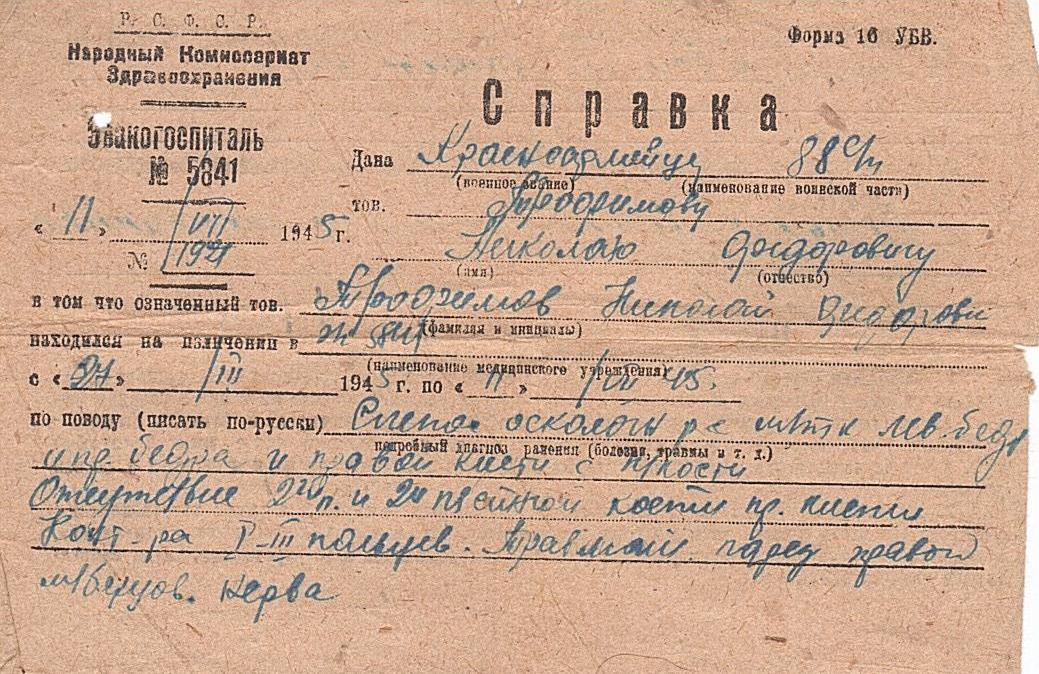 Р. С. Ф. С. Р.
Народный Комиссариат
Здравоохранения
Эвакогоспиталь
№ 5841
« 11 » VII 1945 г.
№ 1921
Форма 16 УБВ.
Справка
Дана Красноармейцу 88 с/п
(военное звание) (наименование воинской части)
тов. Трофимову
Николаю Фидоровичу
(имя) (отчество)
в том что означенный тов. Трофимов Николай Фидорови
(фамилия и инициалы)
находился на излечении в 5841
(наименование медицинского учреждения)
с « 27 » III 1945 г. по « 11 » VII 45.
по поводу (писать по-русски) Слепое осколочн р-е мягк лев. бедр
подробный диагноз ранения (болезни, травмы и т. д.)
и пр. бедра и правой кисти с кости
Отсутствие 2го п. и 2й пястной кости пр. кисти
Конт-ра I-III пальцев. Травмат. парез правой
м/берцов. нерва